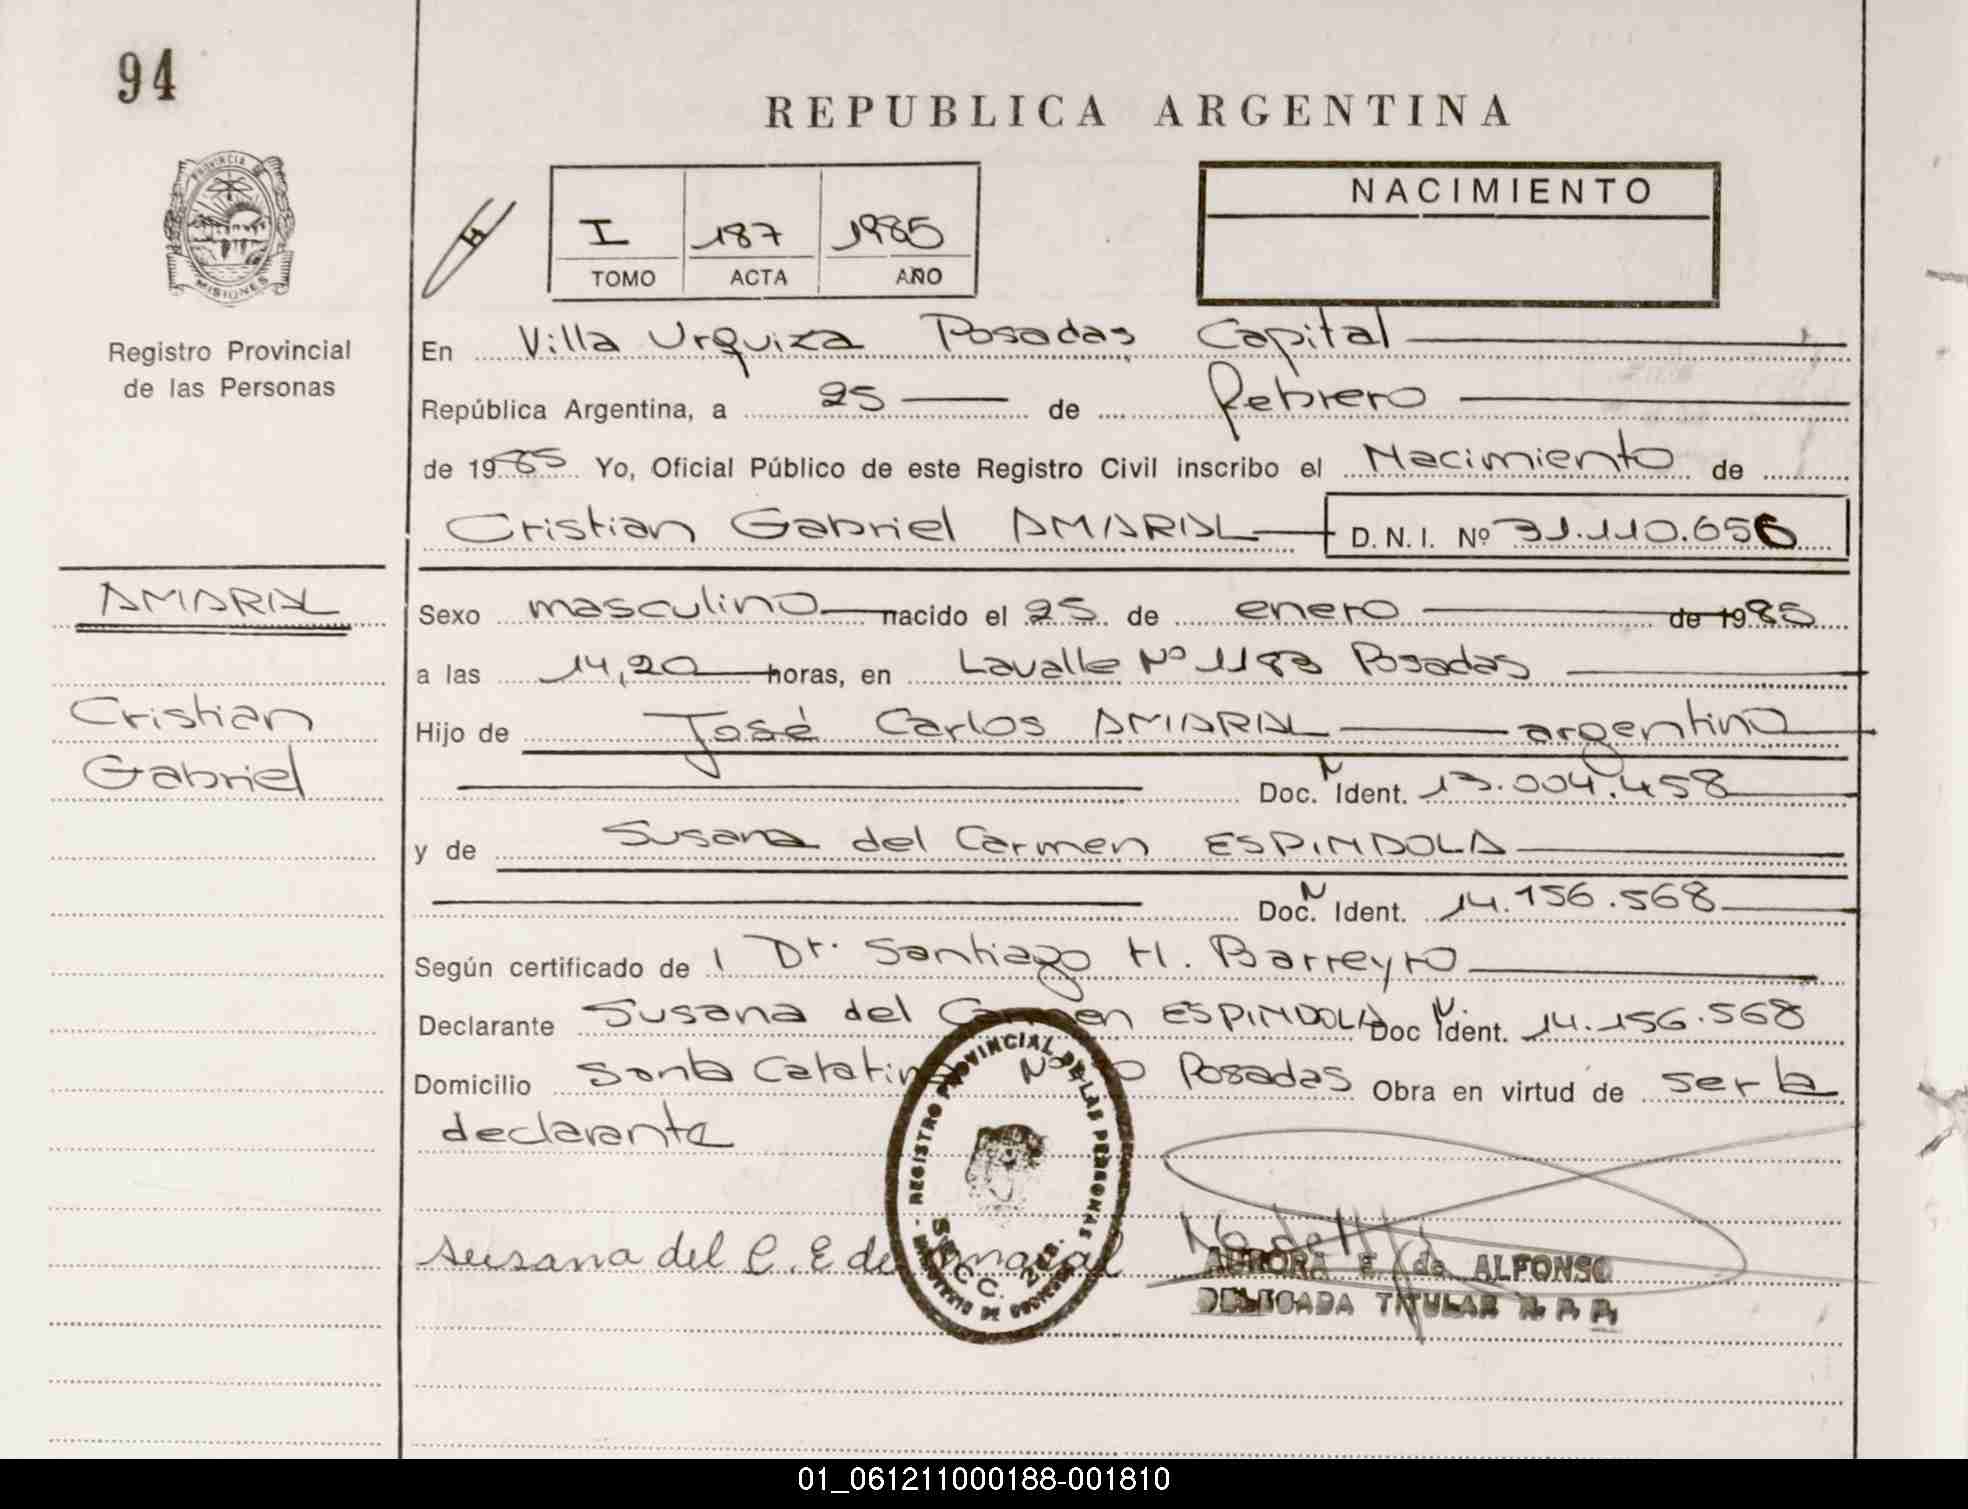 94
REPUBLICA ARGENTINA
PROVINCIA DE
MISIONES
Registro Provincial
de las Personas
I 187 1985
TOMO ACTA AÑO
NACIMIENTO
En Villa Urquiza Posadas Capital
República Argentina, a 25 de febrero
de 1985 Yo, Oficial Público de este Registro Civil inscribo el Nacimiento de
Cristian Gabriel AMARAL D. N. I. Nº 31.110.656
AMARAL
Cristian
Gabriel
Sexo masculino nacido el 25 de enero de 1985
a las 14,20 horas, en Lavalle Nº 1183 Posadas
Hijo de José Carlos AMARAL argentino
Doc. N Ident. 13.004.458
y de Susana del Carmen ESPINDOLA
Doc. N Ident. 14.156.568
Según certificado de Dr. Santiago H. Barreyro
Declarante Susana del Carmen ESPINDOLA Doc N Ident. 14.156.568
Domicilio Santa Catalina Nº Posadas Obra en virtud de ser la
declarante
REGISTRO PROVINCIAL DE LAS PERSONAS
Susana del C. E de Amaral
AURORA E. de ALFONSO
DELEGADA TITULAR R. P. P.
01_061211000188-001810